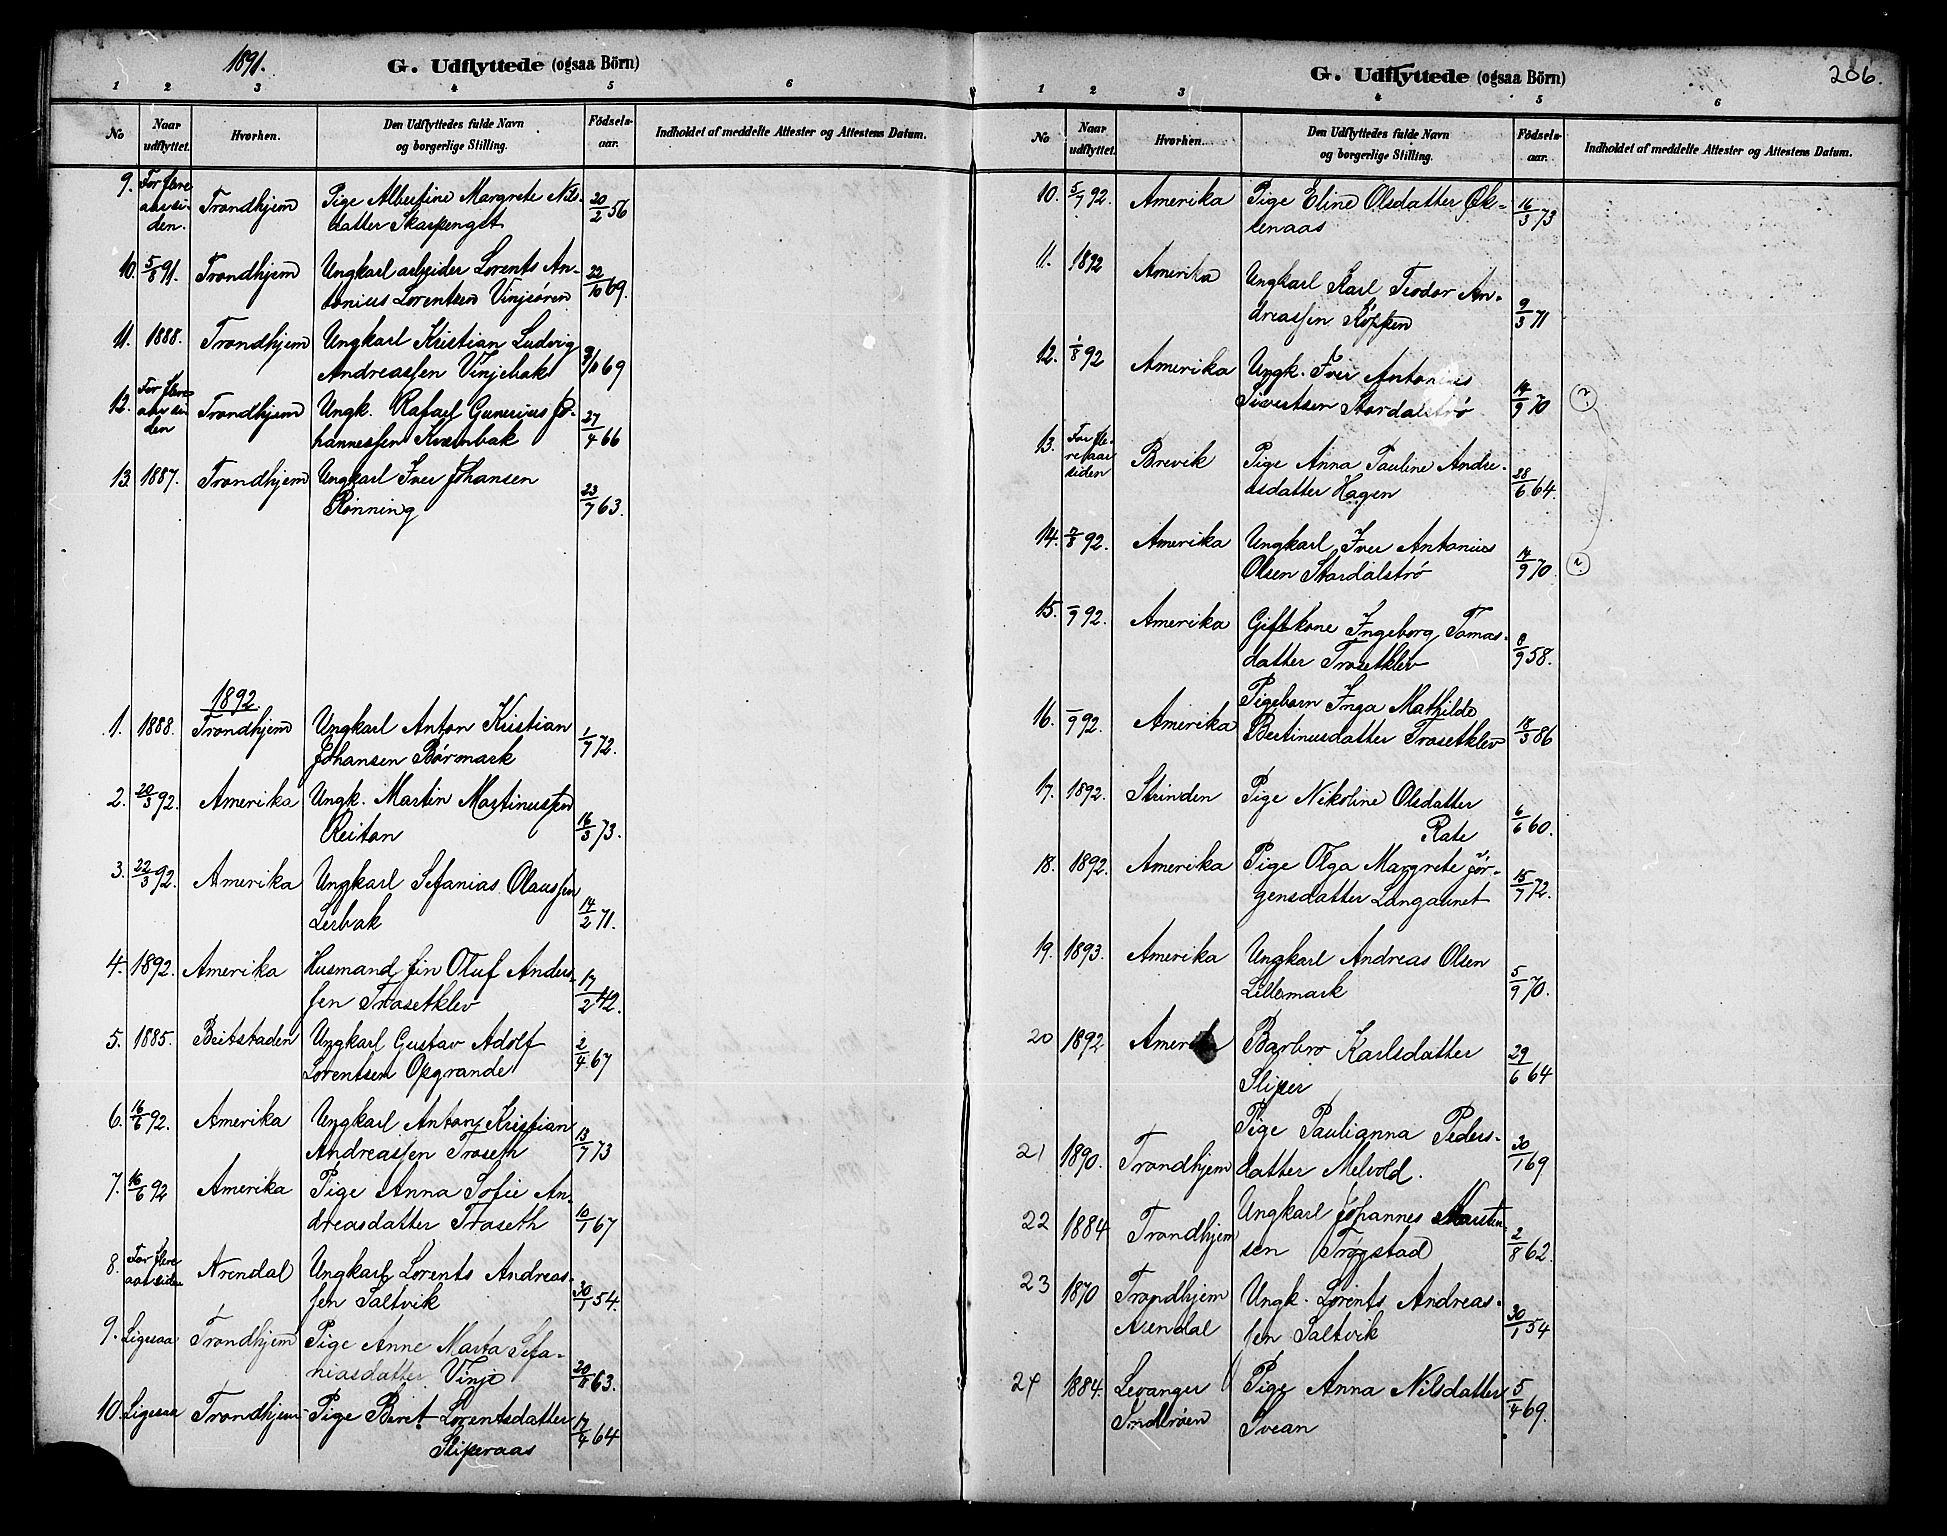 1891.
G. Udflyttede (ogsaa Börn)
1 2 3 4 5 6
No Naar udflyttet. Hvorhen. Den Udflyttedes fulde Navn og borgerlige Stilling. Fødselsaar. Indholdet af meddelte Attester og Attestens Datum.
9. For flere aar siden. Trondhjem Pige Albertine Margrete Nils-
datter Skarpengst 20/2 56
10. 5/8 91. Trondhjem Ungkarl arbeider Lorents An-
tonius Lorentsen Vinjesören 22/10 69.
11. 1888. Trondhjem Ungkarl Kristian Ludvig
Andreassen Vinjebak 9/10 69
12. For flere aar siden Trondhjem Ungk. Rafael Gunerius Jo-
hannessen Kvernbak 27/4 66
13. 1887. Trondhjem Ungkarl Iver Johansen
Rønning 23/7 63.
1892.
1. 1888. Trondhjem Ungkarl Anton Kristian
Johansen Børmark 1/7 72.
2. 20/3 92. Amerika Ungk. Martin Martinussen
Reitan 16/3 73.
3. 22/3 92. Amerika Ungkarl Sefanias Olaussen
Lerbak 14/2 71.
4. 1892. Amerika Husmand Jin Oluf Anders-
sen Trosetklev 17/2 42.
5. 1885. Beitstaden Ungkarl Gustav Adolf
Lorentsen Opgrande 2/4 67
6. 16/6 92. Amerika Ungkarl Anton Kristian
Andreassen Troseth 13/7 73
7. 16/6 92 Amerika Pige Anna Sofie An-
dreasdatter Troseth 10/1 67
8. For flere aar siden Arendal Ungkarl Lorents Andreas-
sen Saltvik 30/1 54.
9. Ligesaa Trondhjem Pige Anne Marta Sefa-
niasdatter Vinje 20/11 63.
10. Ligesaa Trondhjem Pige Beret Lorentsdatter
Sliperaas 17/4 64
G. Udflyttede (ogsaa Börn)
206.
1 2 3 4 5 6
No Naar udflyttet. Hvorhen. Den Udflyttedes fulde Navn og borgerlige Stilling. Fødselsaar. Indholdet af meddelte Attester og Attestens Datum.
10. 5/7 92. Amerika Pige Eline Olsdatter Øk-
lenaas 16/3 73
11. 1892 Amerika Ungkarl Karl Teodor An-
dreassen Köpken 9/3 71
12. 1/8 92 Amerika Ungk. Iver Antonius
Sivertsen Stordalstrø 14/9 70 ?
13. For flere aar siden Brevik Pige Anna Pauline Andre-
asdatter Hagen 28/6 64.
14. 7/8 92. Amerika Ungkarl Iver Antonius
Olsen Stordalstrø 14/9 70. ?
15. –/9 92. Amerika Giftkone Ingeborg Tomas-
datter Trosetklev 8/9 58.
16. –/9 92. Amerika Pigebarn Inga Mathilde
Bertinusdatter Trosetklev 18/3 86
17. 1892. Strinden Pige Nikoline Olsdatter
Rate 6/6 60.
18. 1892. Amerika Pige Olga Margrete Jör-
gensdatter Langaunet 15/7 72.
19. 1893. Amerika Ungkarl Andreas Olsen
Lillemark 5/9 70.
20 1892 Amerik Barbro Karlsdatter
Sliper 29/6 64
21 1890. Trondhjem Pige Paulianna Peders-
datter Melvold. 30/1 69
22 1884 Trondhjem Ungkarl Johannes Marten-
sen Trøgstad 2/8 62.
23 1870 Trondhjem Arendal Ungk. Lorents Andreas-
sen Saltvik 30/1 54
24 1884. Levanger Inderøen Pige Anna Nilsdatter
Svean 5/4 69.